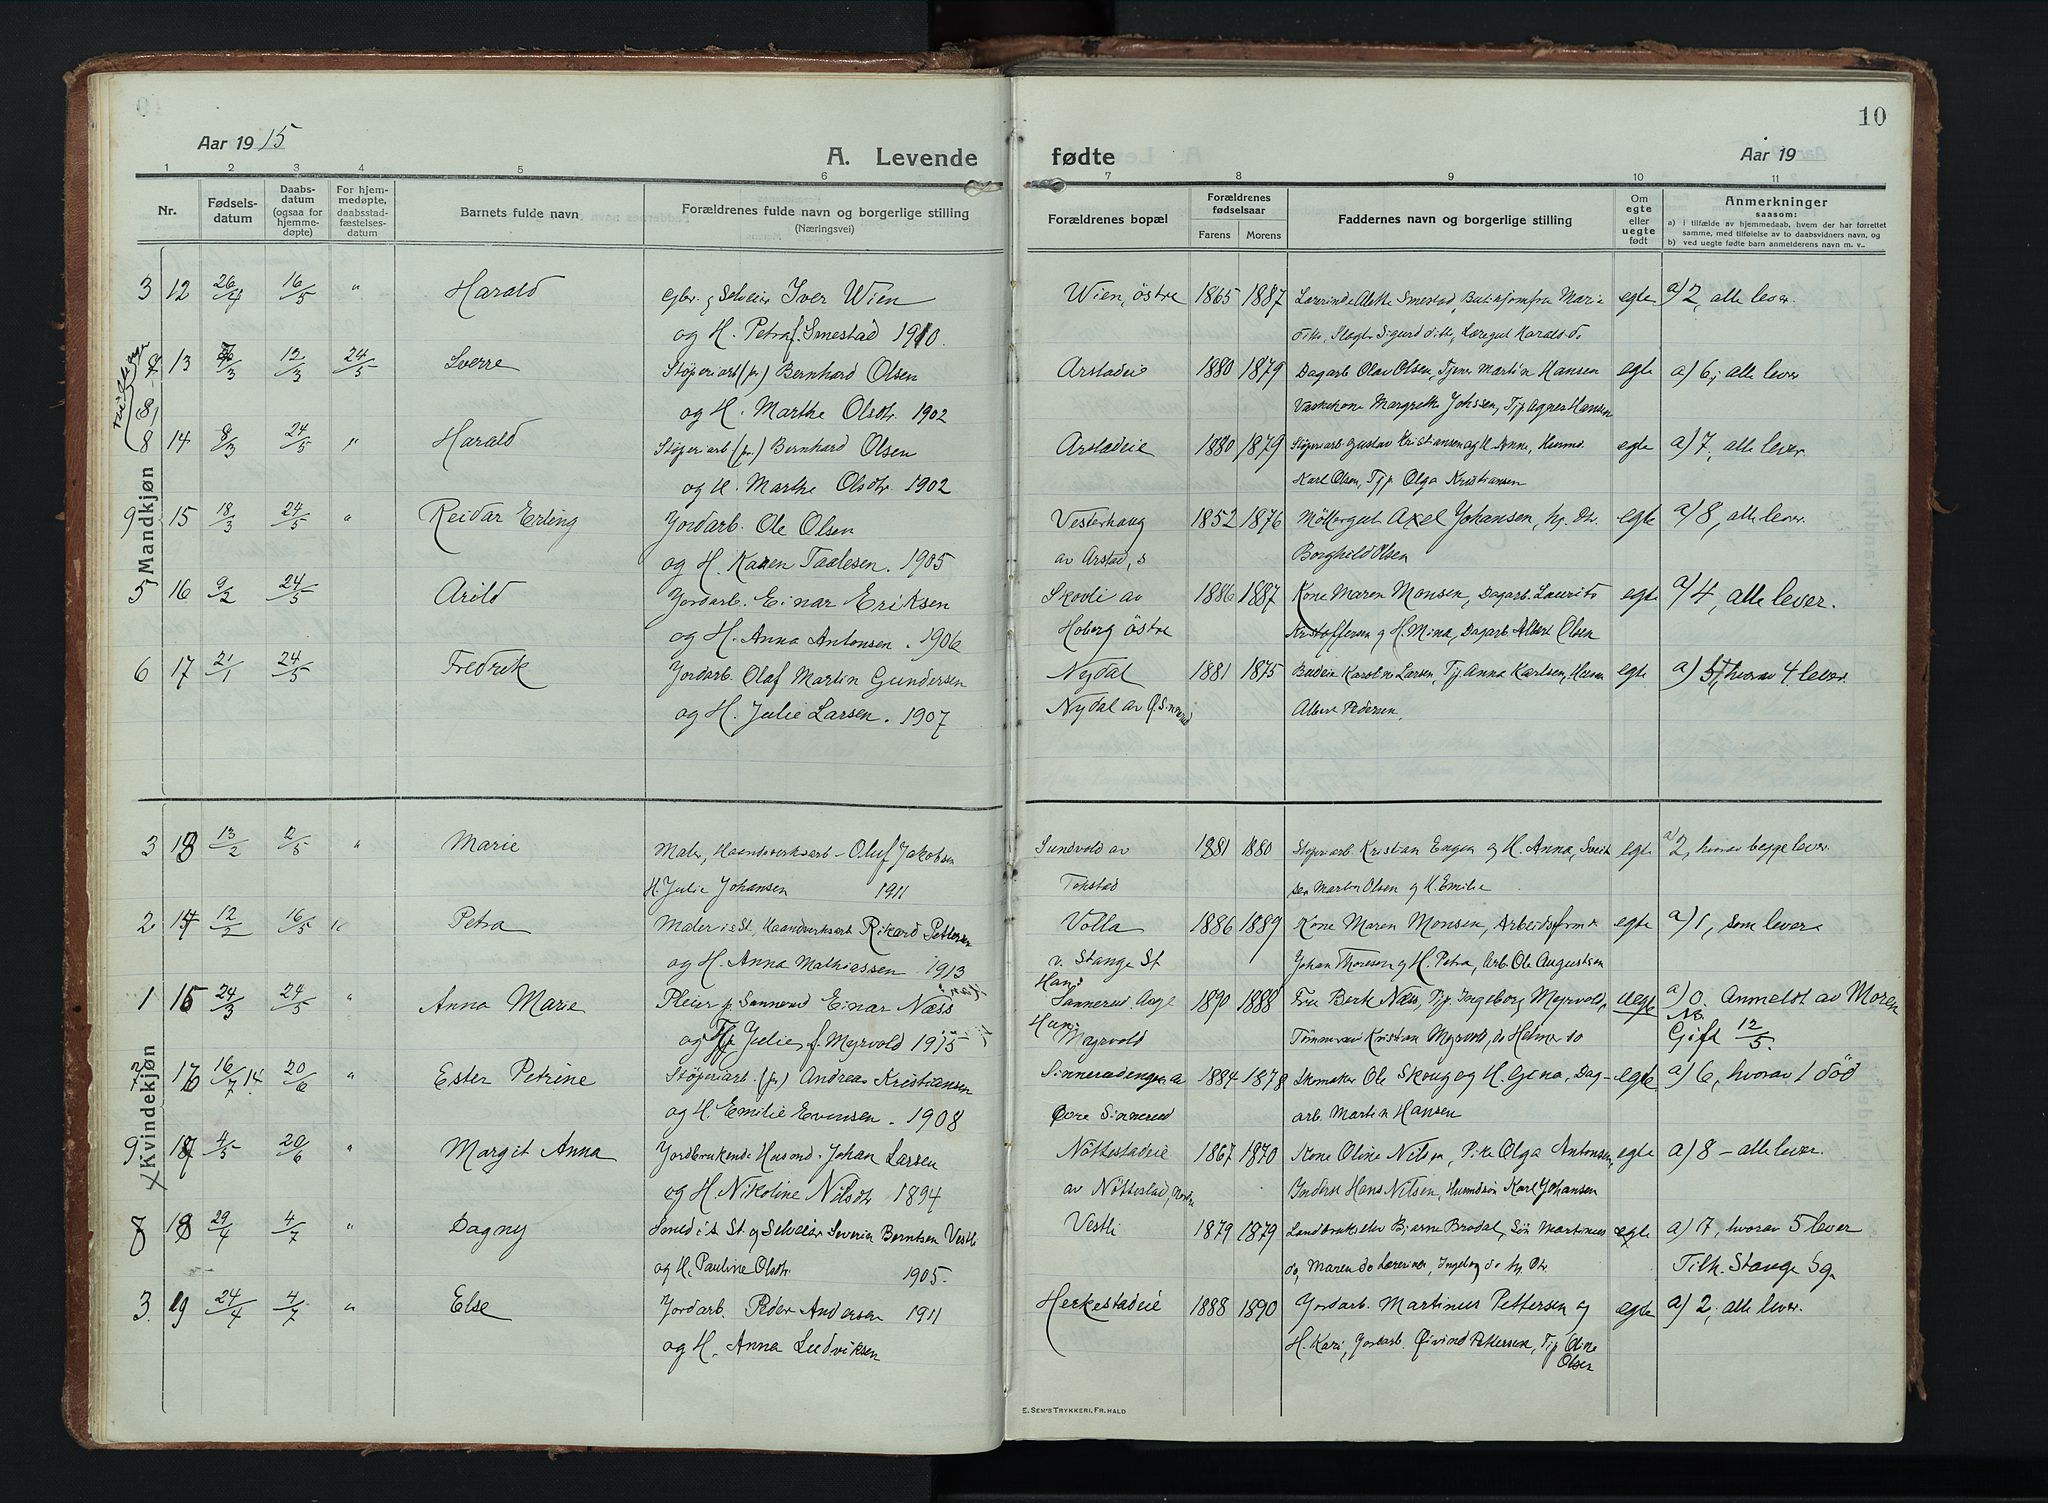 10
Aar 1915
A. Levende
fødte
Aar 19
1 2 3 4 5 6 7 8 9 10 11
Nr.
Fødsels-
datum
Daabs-
datum
(ogsaa for
hjemme-
døpte)
For hjem-
medøpte,
daabsstad-
fæstelses-
datum
Barnets fulde navn
Forældrenes fulde navn og borgerlige stilling
(Næringsvei)
Forældrenes bopæl
Forældrenes
fødselsaar
Farens Morens
Faddernes navn og borgerlige stilling
Om
egte
eller
uegte
født
Anmerkninger
saasom:
a) i tilfælde av hjemmedaab, hvem der har forrettet
samme, med tilføielse av to daabsvidners navn, og
b) ved uegte fødte barn anmelderens navn m. v.
Mandkjøn
3 12 26/4 16/5 " Harald Gbr. og Selveier Iver Wien Wien, östre 1865 1887 egte a) 2, alle lever.
og H. Petra f. Smestad 1910.
13 12/3 24/5 Sverre Støperiarb (pr.) Bernhard Olsen Arstadeie 1880 1879 Dagarb. Olav Olsen, Tjener Martin Hansen egte a) 6, alle lever
og H. Marthe Olsdtr. 1902 Vaskekone Margrethe Johssen, Tjp Agnes Hansen
8 14 8/3 24/5 " Harald Støperiarb (pr.) Bernhard Olsen Arstadeie 1880 1879 Støperiarb Gustav Kristiansen og H. egte a) 7, alle lever.
og H. Marthe Olsdtr. 1902 Karl Olsen, Tjp. Olga Kristiansen
9 15 18/3 24/5 " Reidar Erling Jordarb. Ole Olsen Vesterhaug 1852 1876 Möllergut Axel Johansen, hj. Dtr. egte a) 8, alle lever.
og H. Karen Taalesen. 1905 av Arstad, s Borghild Olsen
5 16 9/2 24/5 Arild Jordarb. Einar Eriksen Skovli av 1886 1887 Kone Maren Monsen, Dagarb. Laurits egte a) 4, alle lever.
og H. Anna Antonsen. 1906 Hoberg östre Kristoffersen og H. Mina, Dagarb. Albert Olsen
6 17 21/1 24/5 Fredrik Jordarb. Olaf Martin Gundersen Nydal 1881 1875 Budeie Karoline Larsen, Tjp. Anna Karlsen, egte a) 5, hvorav 4 lever.
og H. Julie Larsen. 1907 Nydal av Albert Pedersen.
Kvindekjøn
3 13 13/2 2/5 " Marie Maler, Haandverksarb. Oluf Jakobsen Sundvold av 1881 1880 Støperiarb. Kristian Engen og H. Anna, egte a) 2, hvorav begge lever.
H. Julie Johansen 1911 Tokstad Martin Olsen og H. Emilie
2 14 12/2 16/5 " Petra Maler i s. St., Haandverksarb Rikard Pettersen Volla 1886 1889 Kone Maren Monsen, egte a) 1, som lever
og H. Anna Mathiassen 1913 v. Stange St Johan Thoresen og H. Petra, Arb. Ole Augustsen
1 15 24/3 24/5 " Anna Marie Pleier p. Sannerud Einar Næss Han: Sannerud 1890 1888 Næss, Tjp. Ingeborg Myrvold, uegte a) 0. Anmeldt av Moren
og Tjp Julie f. Myrvold 1915 Hun: Myrvold Kristian Myrvold, do Helmer do Gift 12/5.
7 16 16/7 14 20/6 " Ester Petrine Støperiarb. (pr.) Andreas Kristiansen 1884 1878 Skomaker Ole Skoug og H. Gina, Dag- egte a) 6, hvorav 1 död
og H. Emilie Evensen. 1908 Øvre Sinnerud arb. Martin Hansen
9 17 4/5 20/6 " Margit Anna Jordbrukende Husmd. Johan Larsen Nöttestadeie 1867 1870 Kone Oline Nilsen, Pike Olga Antonsen, egte a) 8 – alle lever.
og H. Nikoline Nilsdtr 1894 av Nöttestad, Hans Nilsen, Karl Johansen
18 29/4 4/7 " Dagny Smed i s. St. og Selveier Severin Berntsen Vestli Vestli 1879 1879 Landbrukselev Bjarne Brodal, Sön Martinus egte a) 7, hvorav 5 lever
og H. Pauline Olsdtr. 1905. do, Maren do Lærerinde, Ingeborg do hj. Dtr. Tilh. Stange Sg.
3 19 24/4 4/7 " Else Jordarb. Peder Andersen 1911 Herkestadeie 1888 1890 Jordarb. Martinus Pettersen og egte a) 2, alle lever.
og H. Anna Ludviksen H. Kari, Jordarb. Øivind Pettersen, Tjp Oline
Olsen
E. SEM'S TRYKKERI, FR. HALD